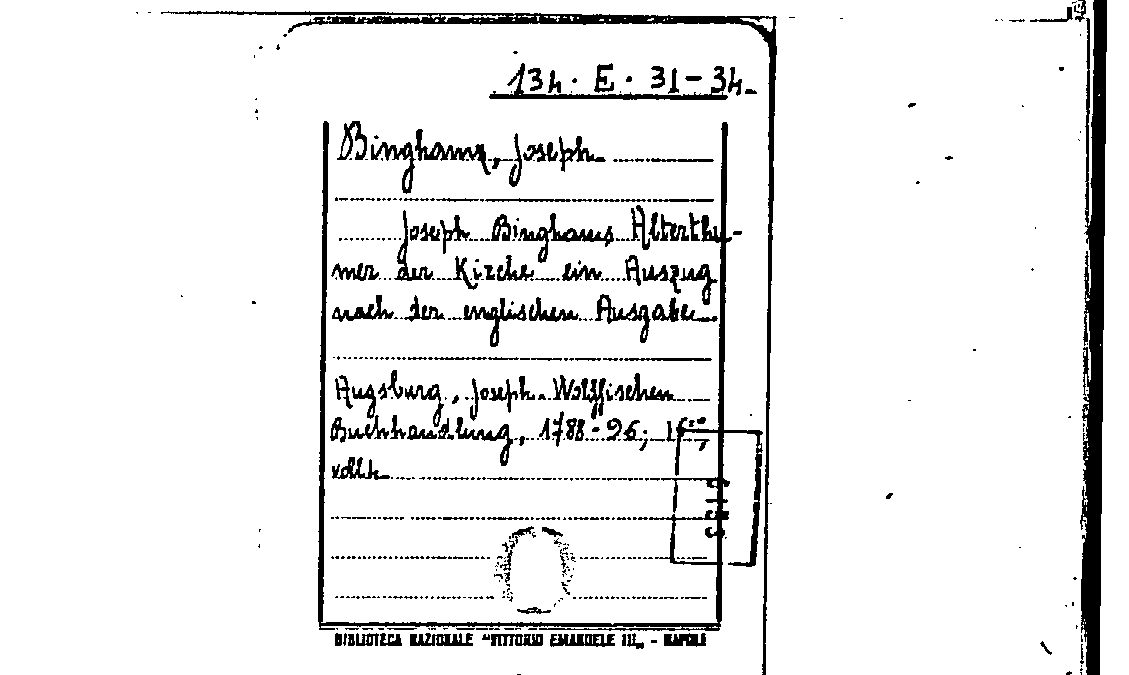 134. E. 31-34.
Binghams, Joseph.
Joseph Binghams Alterthü-
mer der Kirche ein Auszug
nach der englischen Ausgabe.
Augsburg, Joseph-Wolffischen
Buchhandlung, 1788-96; 16°,
voll.
BIBLIOTECA NAZIONALE "VITTORIO EMANUELE III„ - NAPOLI